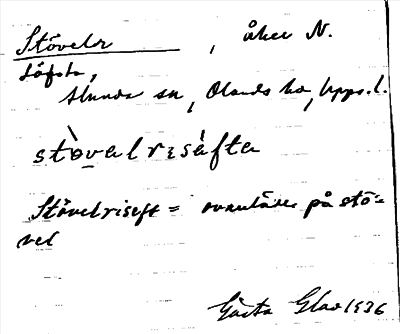 Stövelr , åker N.
Löfsta,
Alunda sn, Olands hd, Upps. l.
stòvalrisáfta
Stövelriseft = ovanläder på stö-
vel
Gösta Glad 1936